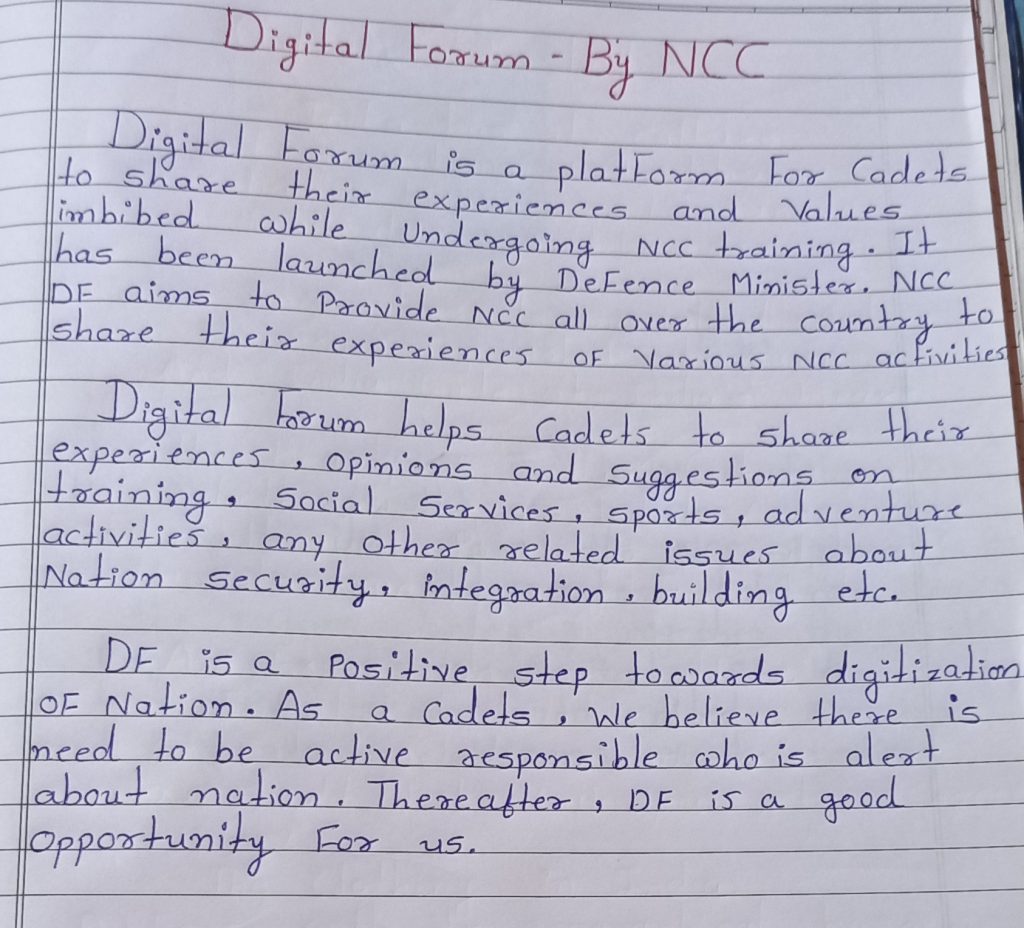 Digital Forum - By NCC
Digital Forum is a platform For Cadets
to share their experiences and Values
imbibed while Undergoing NCC training. It
has been launched by Defence Minister. NCC
DF aims to Provide NCC all over the country to
share their experiences of Various NCC activities
Digital Forum helps Cadets to share their
experiences, opinions and suggestions on
training, Social Services, sports, adventure
activities, any other related issues about
Nation security, integration, building etc.
DF is a Positive step towards digitization
of Nation. As a Cadets, We believe there is
need to be active responsible who is alert
about nation. Thereafter, DF is a good
opportunity For us.